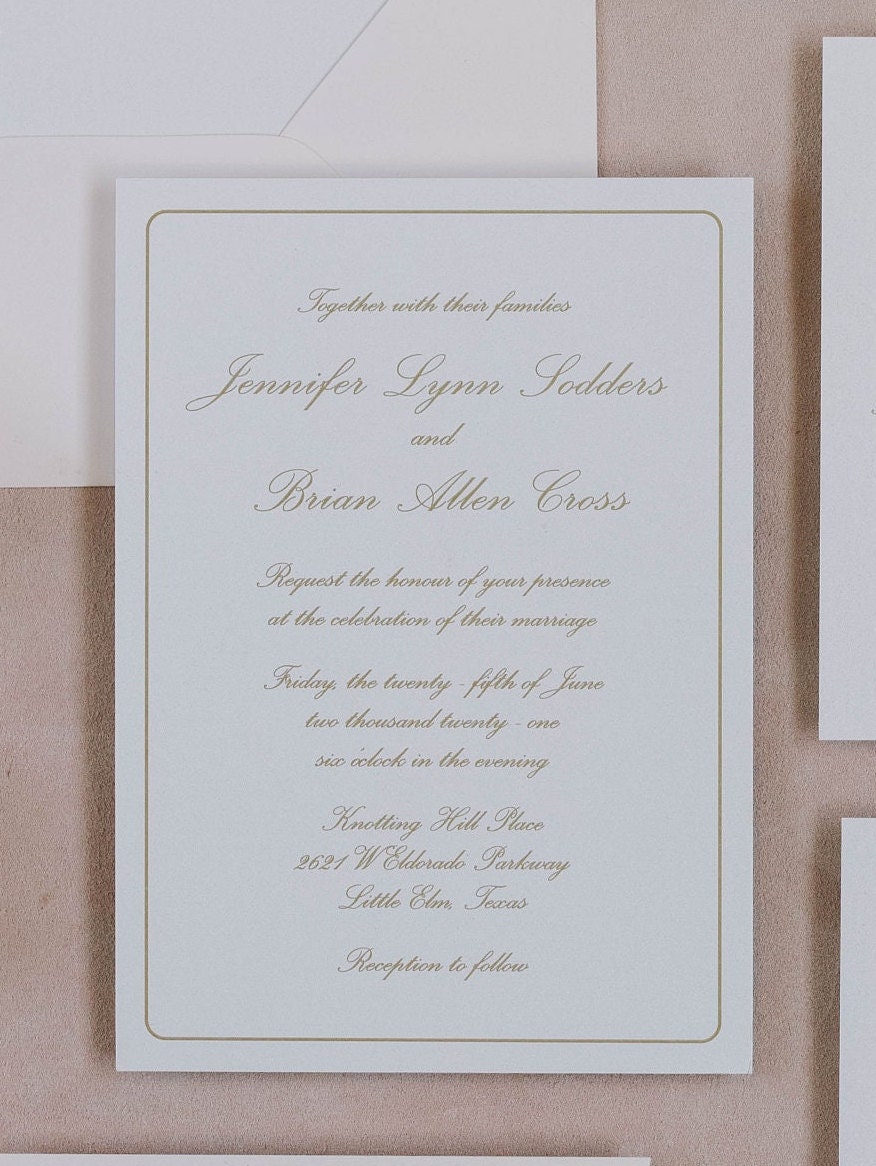 Together with their families
Jennifer Lynn Sodders
and
Brian Allen Cross
Request the honour of your presence
at the celebration of their marriage
Friday, the twenty - fifth of June
two thousand twenty - one
six o'clock in the evening
Knotting Hill Place
2621 W Eldorado Parkway
Little Elm, Texas
Reception to follow